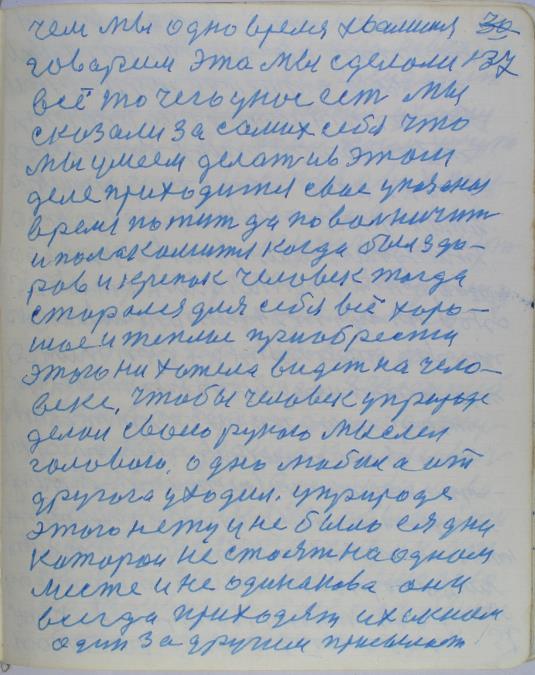 чем мы одно время хвалимся 30
говорим эта мы сделали 37
всё то чего у нас ест мы
сказали за самих себя что
мы умеем делат и в этом
деле приходится свае
время пожит да поволничит
и полакомится когда был здо-
ров и крепок человек тогда
старался для себя всё харо-
шое и теплое приобрести
этого ни хотела видет на чело-
веке, чтобы человек у природе
делал своею рукою мыслей
головою, одно любил а от
другога уходил. у природе
этого нету и не было ея дни
которои не стоят на одном
месте и не одинакова они
всегда приходят
один за другим присылают